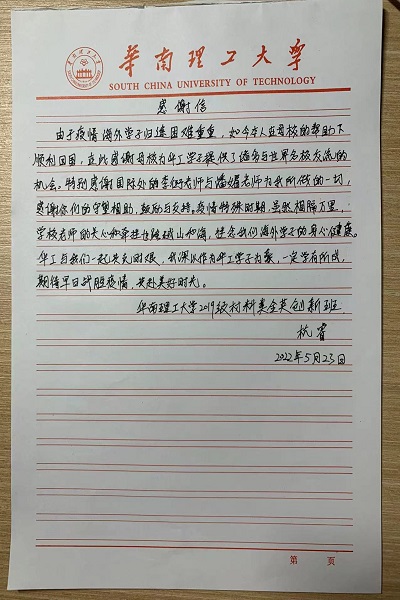 華南理工大學
SOUTH CHINA UNIVERSITY OF TECHNOLOGY
感谢信
由于疫情海外学子归途困难重重，如今本人在母校的帮助下
顺利回国，在此感谢母校为华工学子提供了诸多与世界名校交流的
机会。特别感谢国际处的李老师与潘老师为我所做的一切，
感谢你们的守望相助，鼓励与支持。疫情特殊时期，虽然相隔万里，
学校老师的关心和牵挂也随越山和海，挂念我们海外学子的身心健康。
华工与我们一起共克时艰，我深以作为华工学子为豪，一定学有所成，
期待早日战胜疫情，共赴美好时光。
华南理工大学2019级材料类全英创新班
杭睿
2022年5月23日
第 页